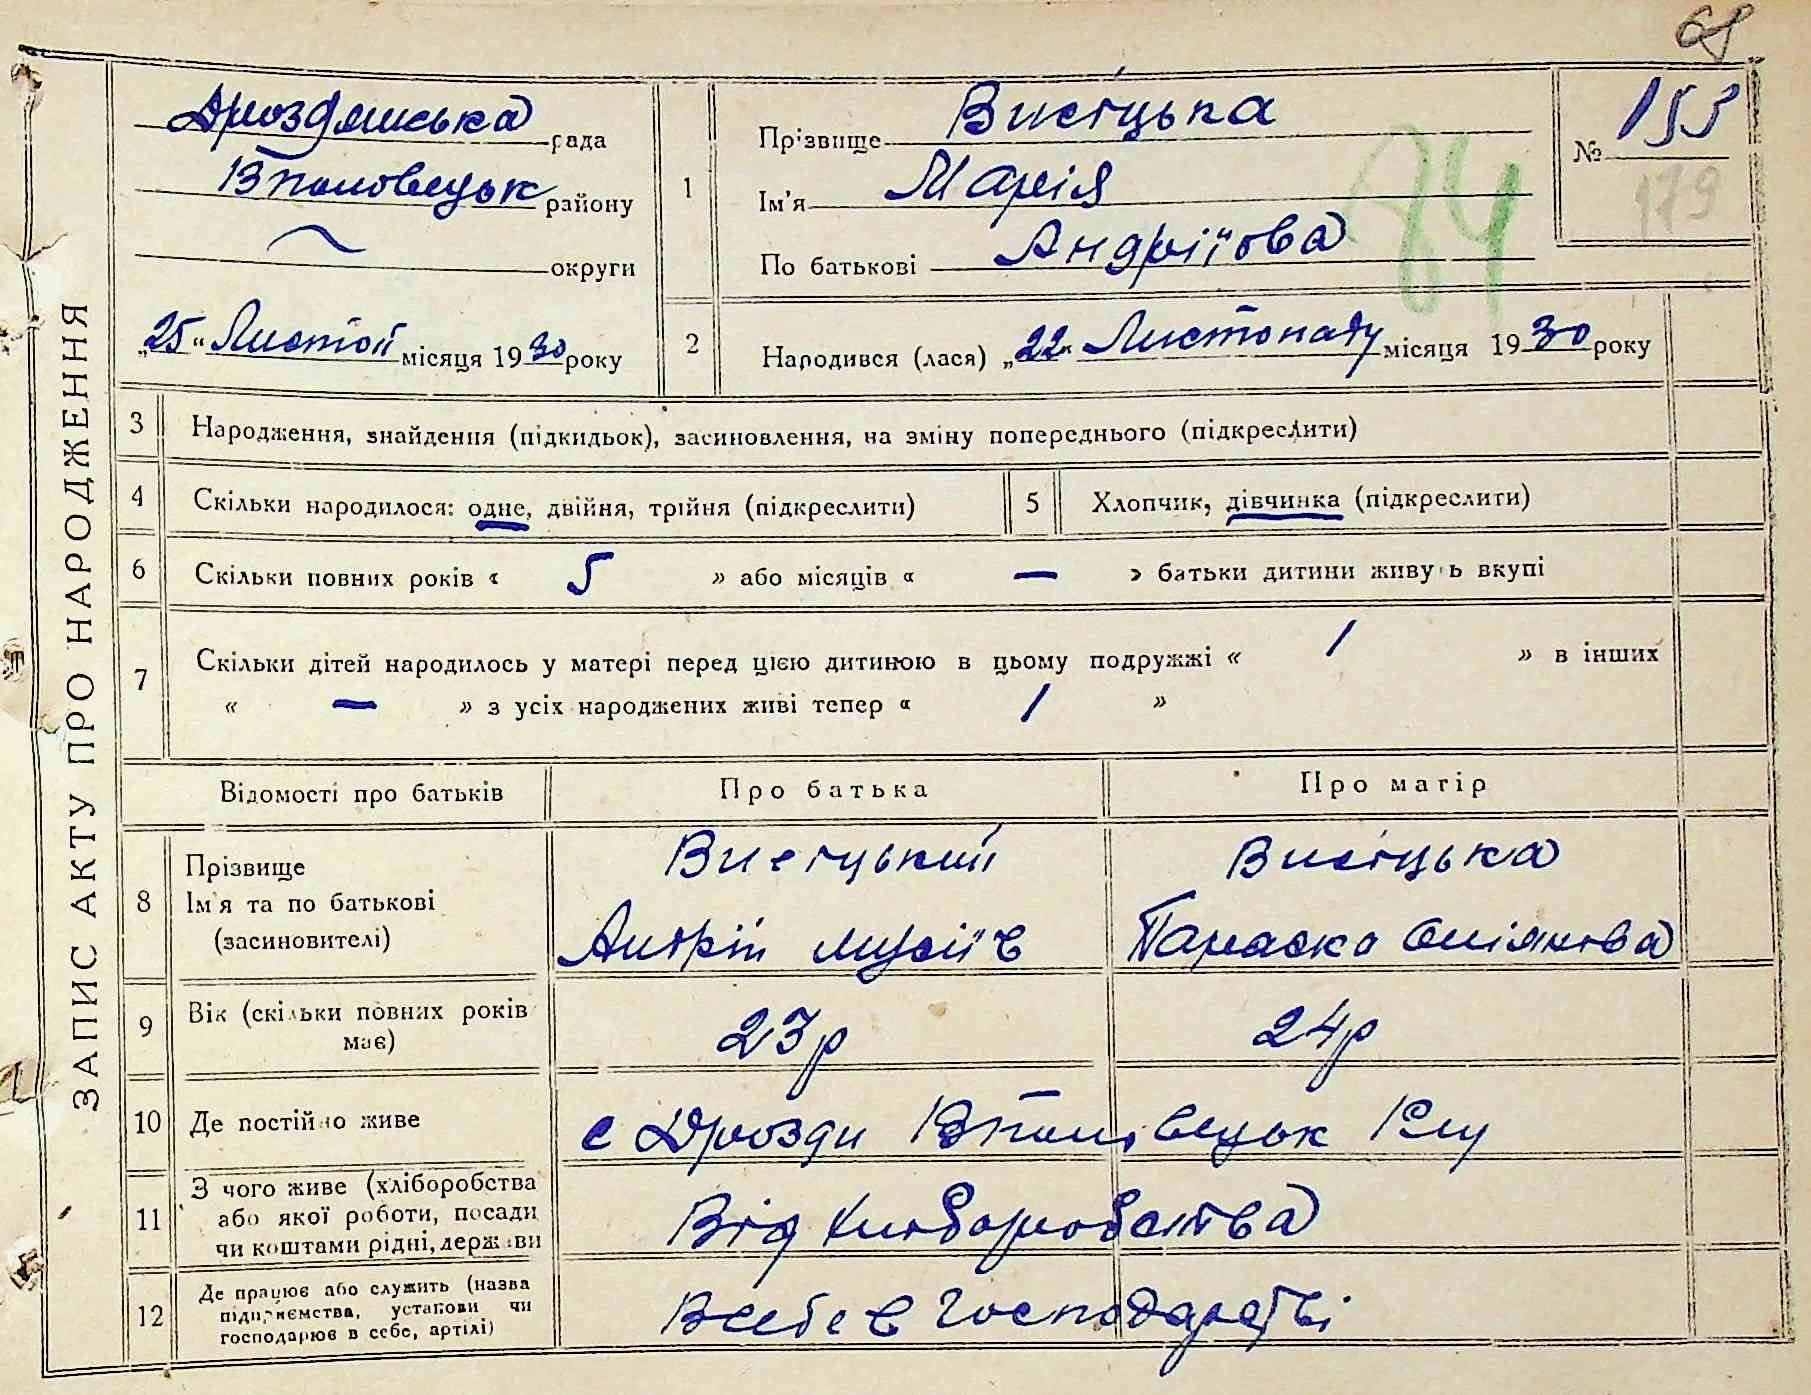 68
ЗАПИС АКТУ ПРО НАРОДЖЕННЯ
Дроздянська рада
Вполовецьк району
округи
„25“ Листоп місяця 1930 року
1
Прізвище Висіцька
Ім'я Марія
По батькові Андріїова
84
№ 155
179
2
Народився (лася) „22“ Листопаду місяця 1930 року
3 Народження, знайдення (підкидьок), засиновлення, на зміну попереднього (підкреслити)
4 Скільки народилося: одне, двійня, трійня (підкреслити)
5 Хлопчик, дівчинка (підкреслити)
6 Скільки повних років « 5 » або місяців « — » батьки дитини живуть вкупі
7 Скільки дітей народилось у матері перед цією дитиною в цьому подружжі « 1 » в інших
« — » з усіх народжених живі тепер « 1 »
Відомості про батьків Про батька Про матір
8
Прізвище Висіцький Висіцька
Ім'я та по батькові
(засиновителі) Андрій Мусіїв Параска
9 Вік (скільки повних років 23р 24р
має)
10 Де постійно живе с Дрозди Вполовецьк Рну
11
З чого живе (хліборобства
або якої роботи, посади Від хлиборобства
чи коштами рідні, держави
12
Де працює або служить (назва
підприємства, установи чи Всебе в господарстві
господарює в себе, артілі)